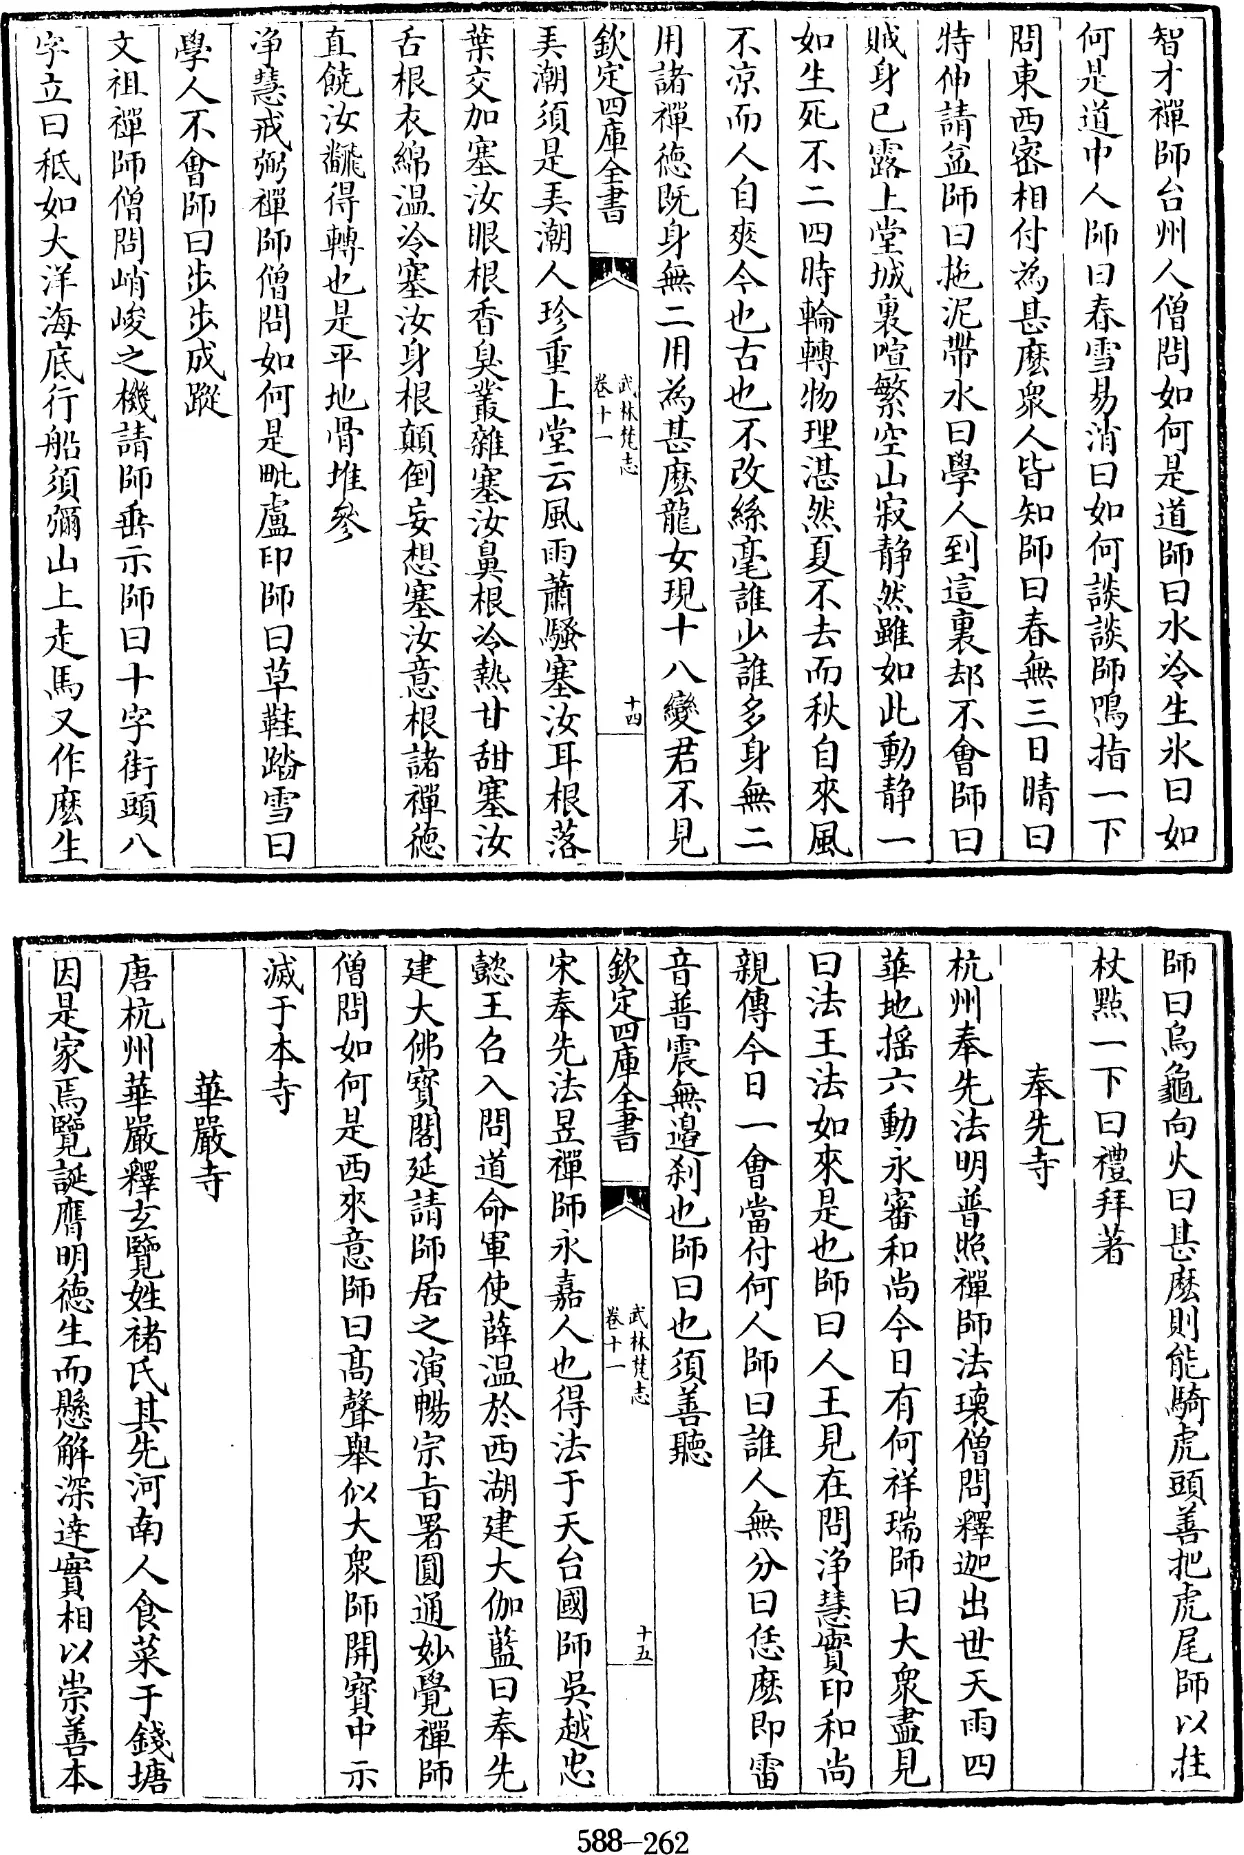 智才禪師台州人僧問如何是道師曰水冷生氷曰如
何是道中人師曰春雪易消曰如何談談師鳴指一下
問東西密相付為甚麽衆人皆知師曰春無三日晴曰
特伸請益師曰拖泥帶水曰學人到這裏却不會師曰
賊身已露上堂城裏喧繁空山寂静然雖如此動静一
如生死不二四時輪轉物理湛然夏不去而秋自來風
不凉而人自爽今也古也不改絲毫誰少誰多身無二
用諸禪德既身無二用為甚麽龍女現十八變君不見
欽定四庫全書
武林梵志
卷十一
十四
弄潮須是弄潮人珍重上堂云風雨蕭騷塞汝耳根落
葉交加塞汝眼根香臭叢雜塞汝鼻根冷熱甘甜塞汝
舌根衣綿温冷塞汝身根顛倒妄想塞汝意根諸禪德
直饒汝翻得轉也是平地骨堆參
净慧戒弼禪師僧問如何是毗盧印師曰草鞋踏雪曰
學人不會師曰步步成蹤
文祖禪師僧問峭峻之機請師垂示師曰十字街頭八
字立曰秖如大洋海底行船須彌山上走馬又作麽生
師曰烏龜向火曰甚麽則能騎虎頭善把虎尾師以拄
杖點一下曰禮拜著
奉先寺
杭州奉先法明普照禪師法瓌僧問釋迦出世天雨四
華地揺六動永審和尚今日有何祥瑞師曰大衆盡見
曰法王法如來是也師曰人王見在問浄慧寶印和尚
親傳今日一會當付何人師曰誰人無分曰恁麽即雷
音普震無邉刹也師曰也須善聽
欽定四庫全書
武林梵志
卷十一
十五
宋奉先法昱禪師永嘉人也得法于天台國師吳越忠
懿王召入問道命軍使薛温於西湖建大伽藍曰奉先
建大佛寶閣延請師居之演暢宗旨署圓通妙覺禪師
僧問如何是西來意師曰高聲舉似大衆師開寶中示
滅于本寺
華嚴寺
唐杭州華嚴釋玄覽姓褚氏其先河南人食菜于錢塘
因是家焉覽誕膺明德生而懸解深達實相以崇善本
588—262